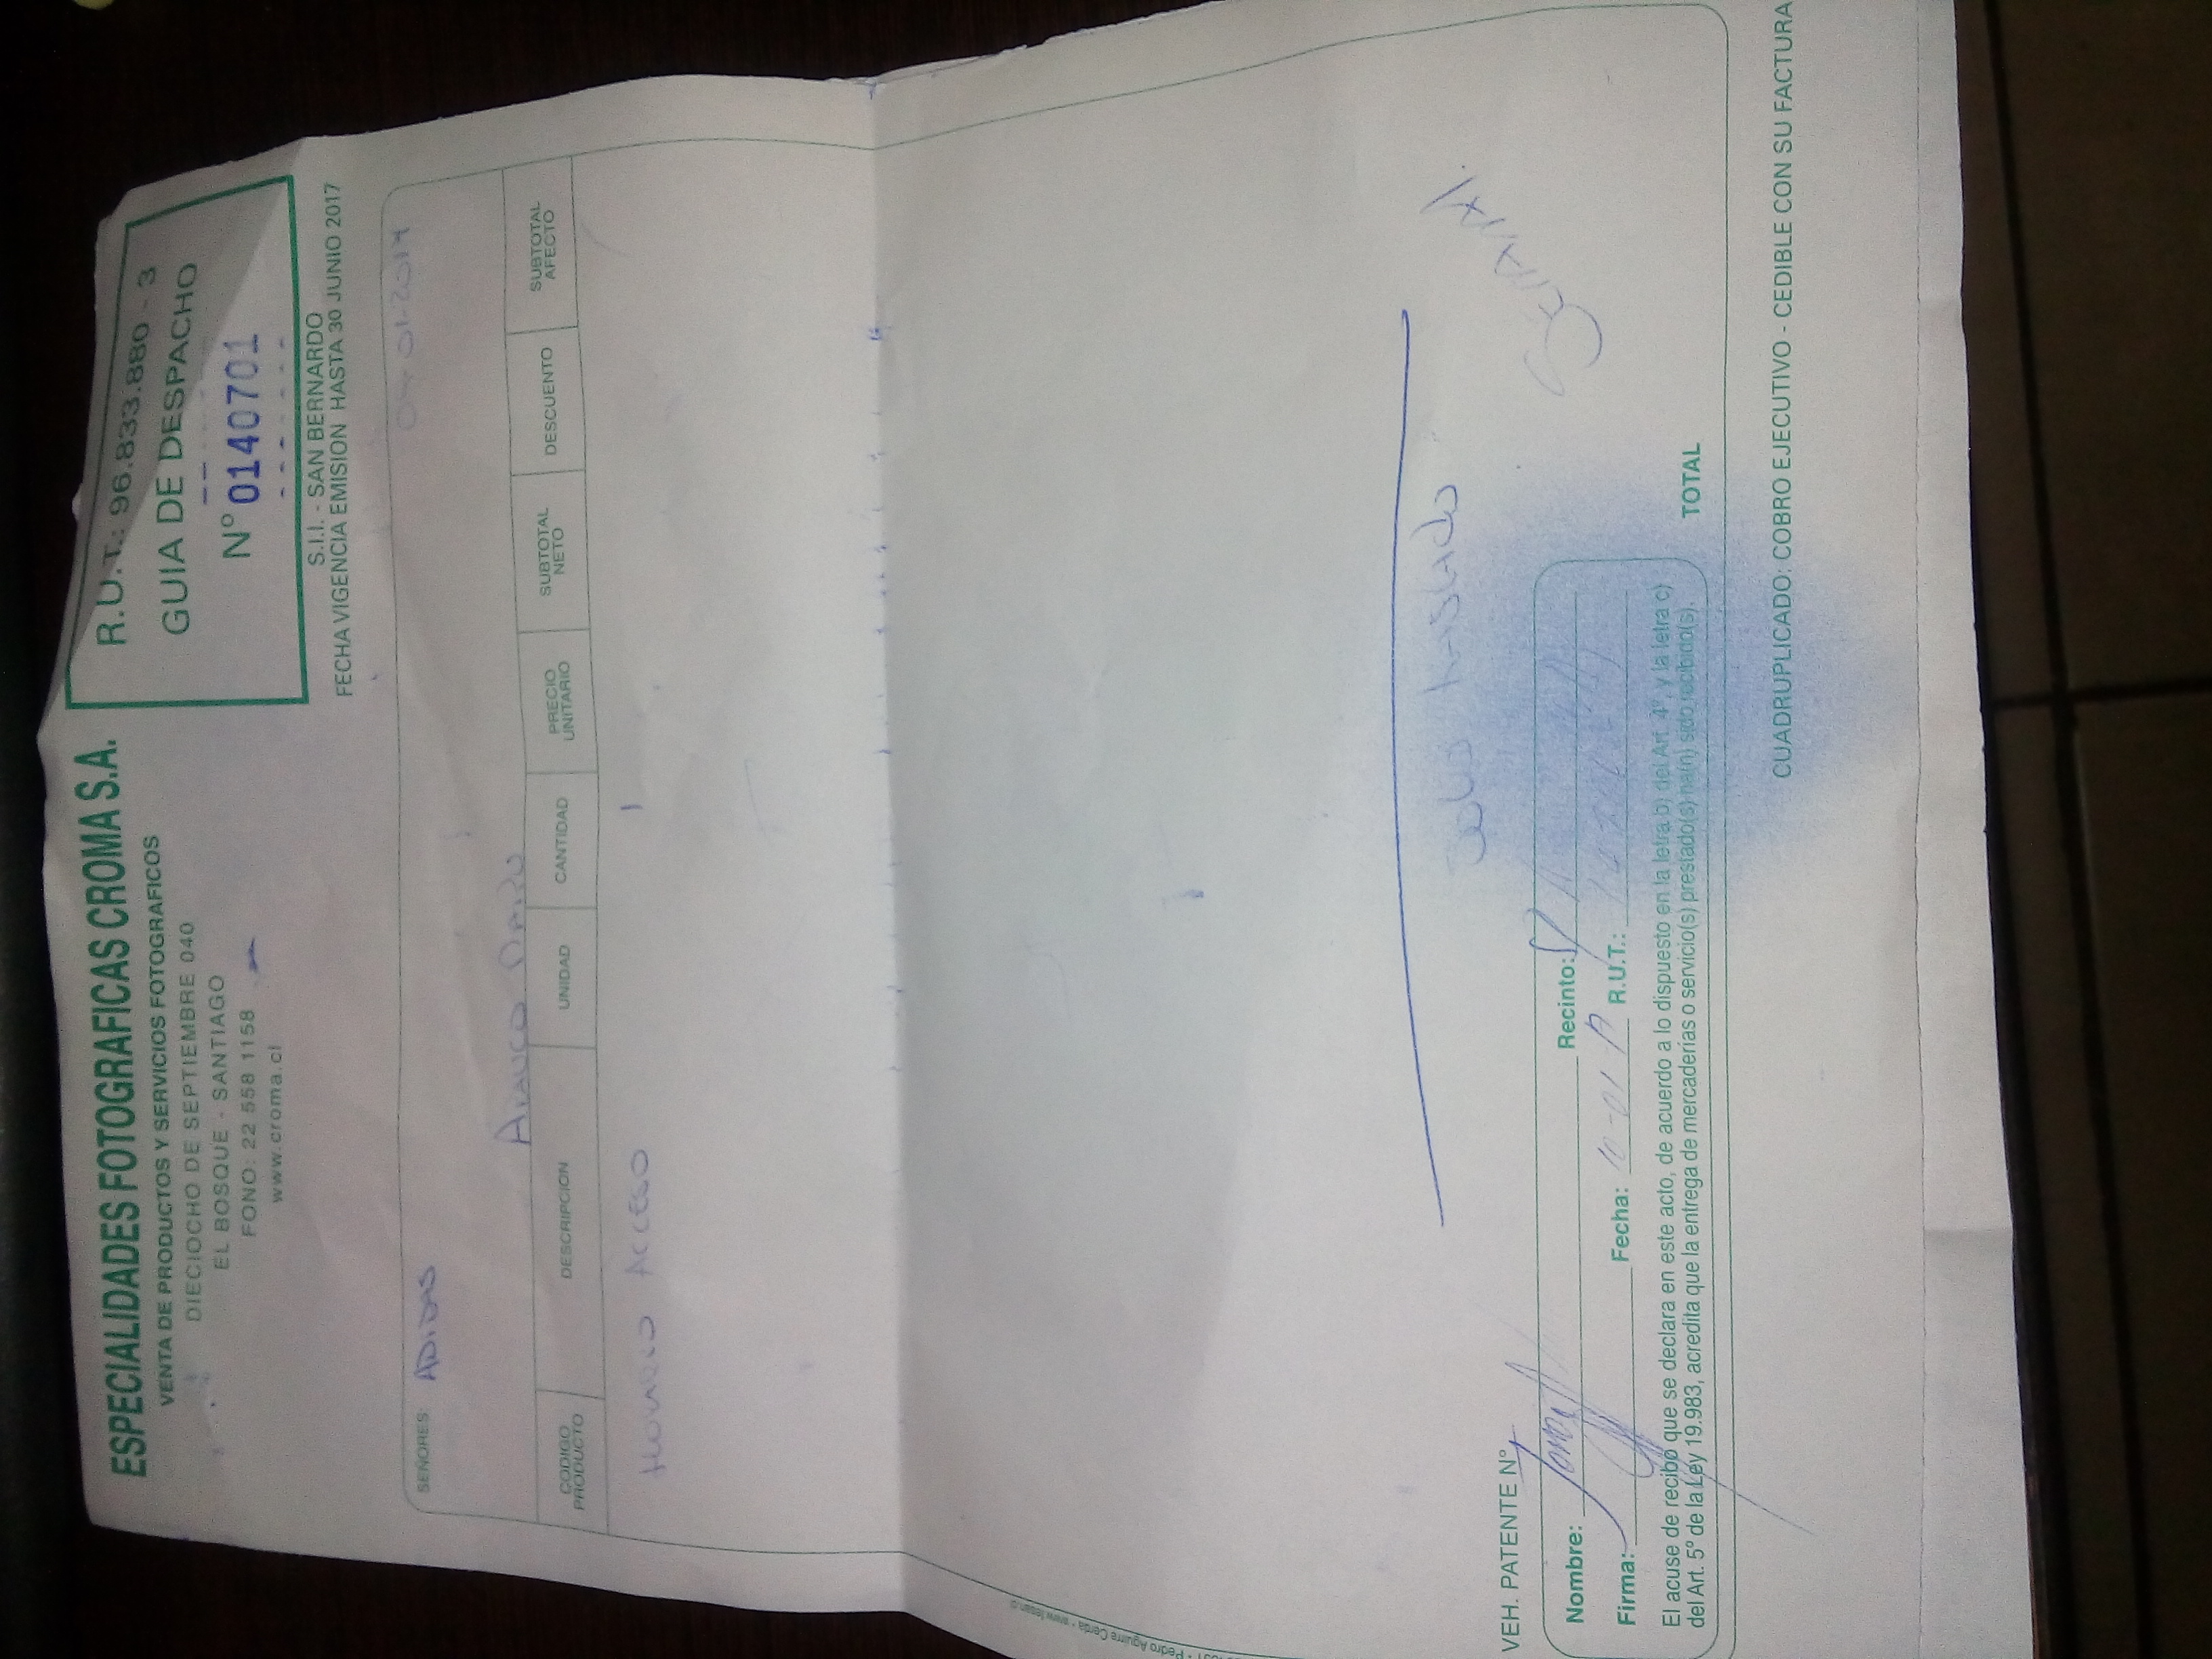 ESPECIALIDADES FOTOGRAFICAS CROMA S.A.
VENTA DE PRODUCTOS Y SERVICIOS FOTOGRAFICOS
DIECIOCHO DE SEPTIEMBRE 040
EL BOSQUE - SANTIAGO
FONO: 22 558 1158
www.croma.cl
R.U.T.: 96.833.880 - 3
GUIA DE DESPACHO
Nº 0140701
S.I.I. - SAN BERNARDO
FECHA VIGENCIA EMISION HASTA 30 JUNIO 2017
SEÑORES: ADIDAS
01-2017
ARAUCO MAIPU
CODIGO PRODUCTO DESCRIPCION UNIDAD CANTIDAD PRECIO UNITARIO SUBTOTAL NETO DESCUENTO SUBTOTAL AFECTO
HORARIO ACCESO 1
Pedro Aguirre Cerda
SOLO TRASLADO
VEH. PATENTE Nº
Nombre: Recinto:
Firma: Fecha: 10-01-17 R.U.T.:
El acuse de recibo que se declara en este acto, de acuerdo a lo dispuesto en la letra b) del Art. 4º, y la letra c)
del Art. 5º de la Ley 19.983, acredita que la entrega de mercaderías o servicio(s) prestado(s) ha(n) sido recibido(s).
TOTAL
CUADRUPLICADO: COBRO EJECUTIVO - CEDIBLE CON SU FACTURA